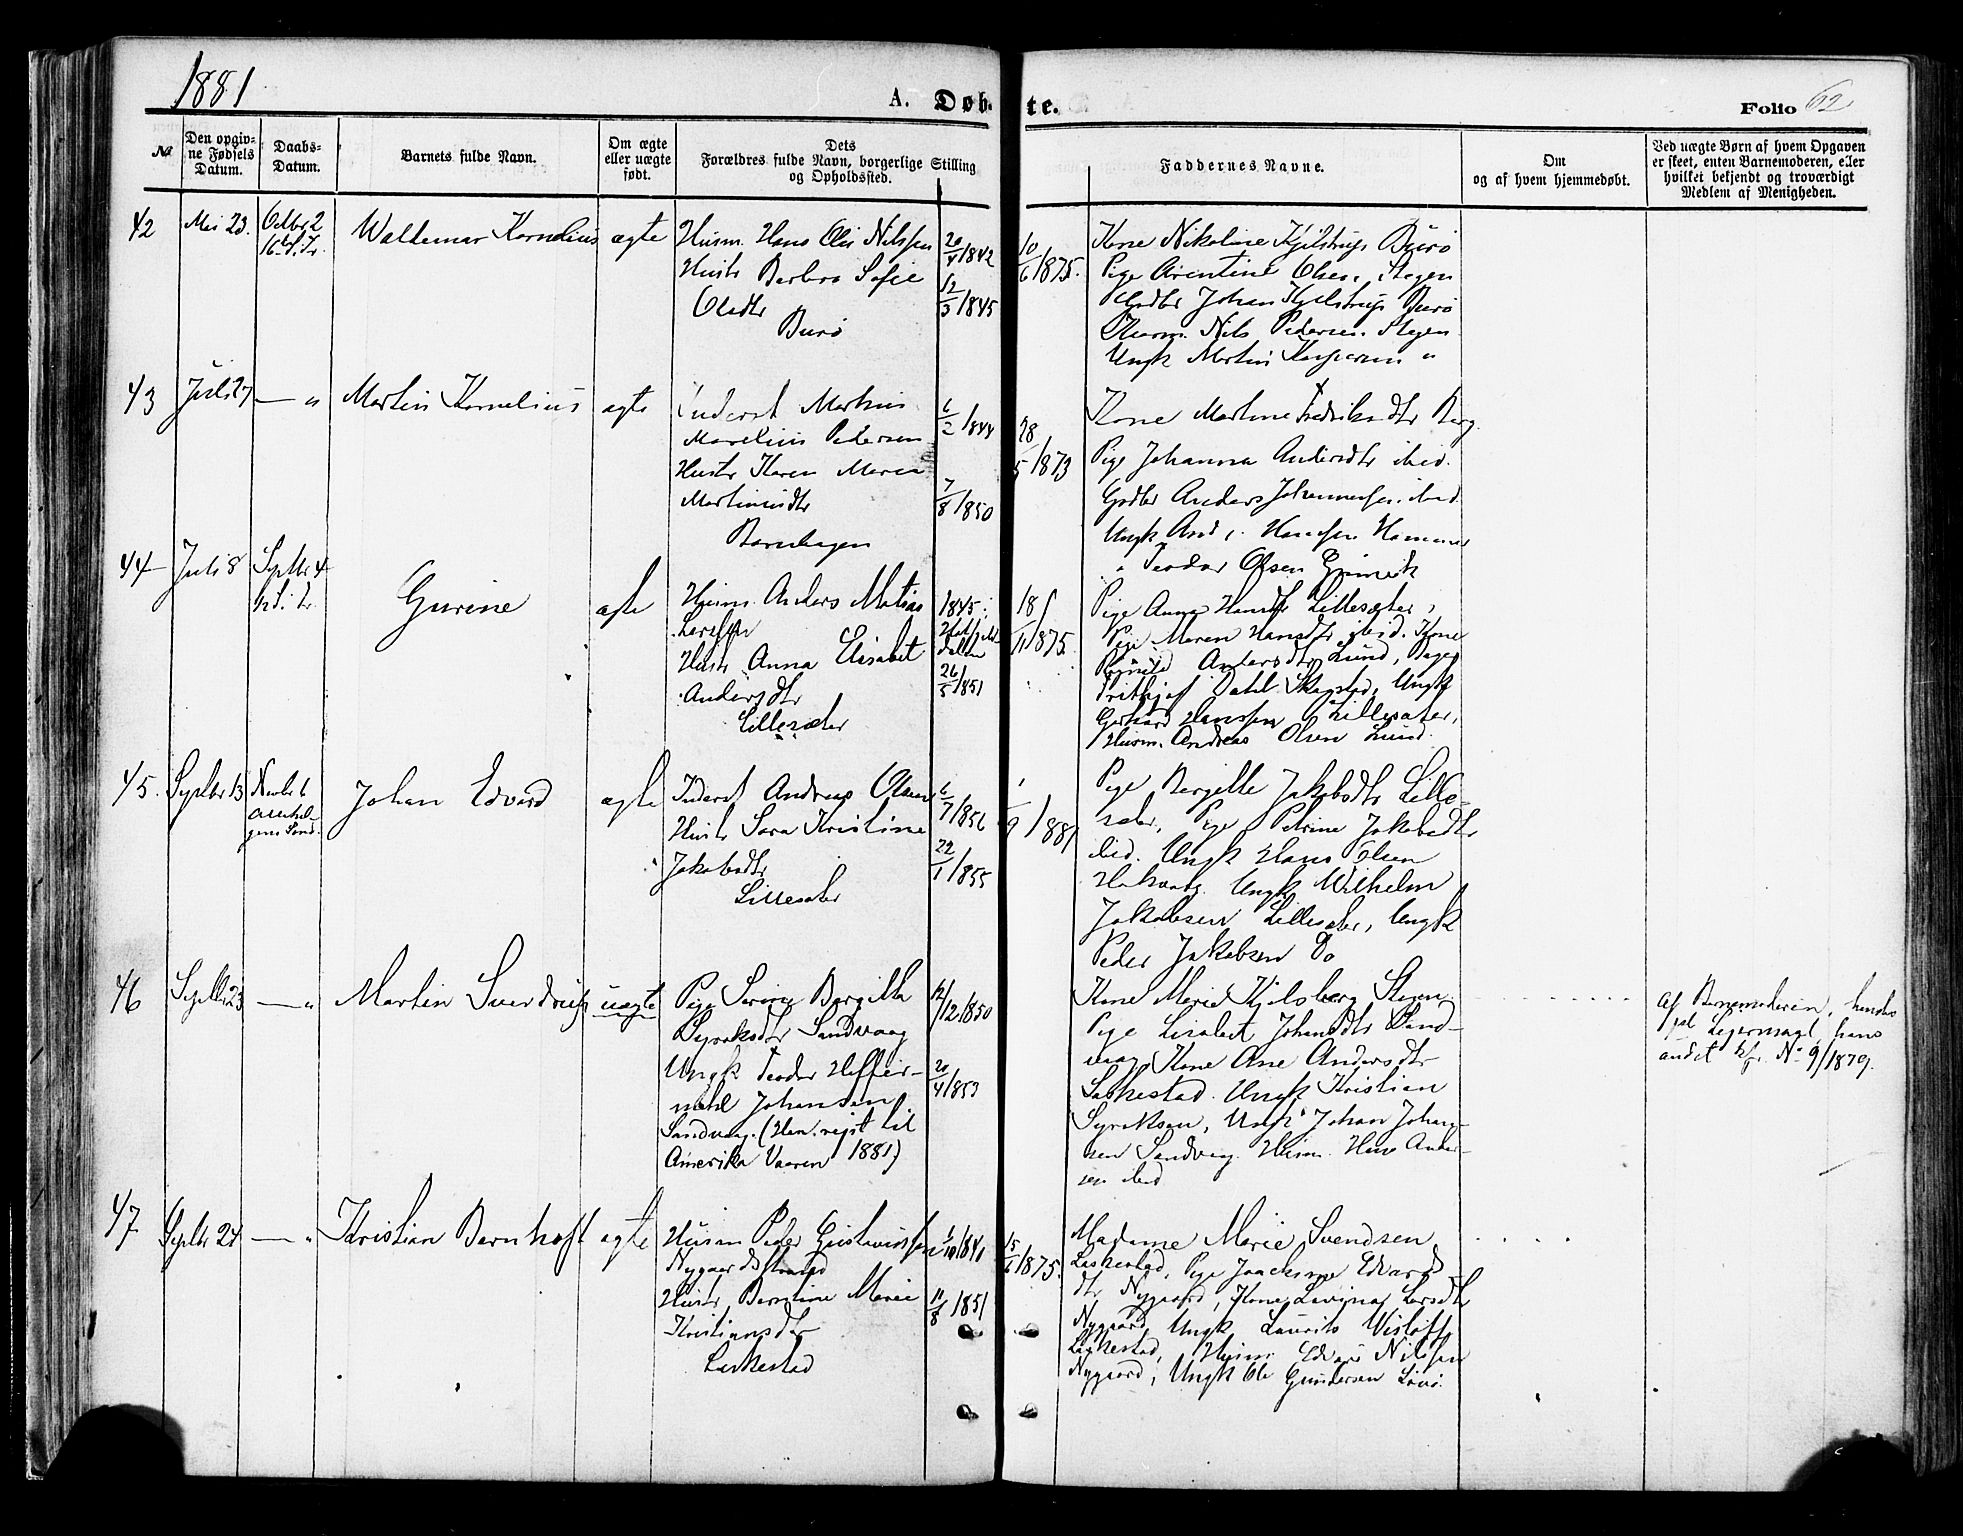 1881
A. Døbte.
Folio 62
№
Den opgivne Fødsels Datum.
Daabs-Datum.
Barnets fulde Navn.
Om ægte eller uægte født.
Dets Forældres fulde Navn, borgerlige Stilling og Opholdssted.
Faddernes Navne.
Om og af hvem hjemmedøbt.
Ved uægte Børn af hvem Opgaven er skeet, enten Barnemoderen, eller hvilket bekjendt og troværdigt Medlem af Menigheden.
42
Mai 23.
Octbr 2
Waldemar Kornelius
ægte
Husm. Hans Nilssen
Hustr Barbra Sofie
Olsdtr
Burø
20/4 1842
12/3 1845
10/6 1875.
Kone Nikoline Kjelstrup Burø
Pige Arentine Olsen, Stegen
Gdbr Johan Kjelstrup Burø
Husm. Nils Pedersen Stegen
Ungk Martin Kaspersen "
43
Juli 27
— "
Martin Kornelius
ægte
Inderst Martin
Marelius Pedersen
Hustr Karen Maren
Martinusdtr
6/2 1844
7/8 1850
28/5 1873
Kone Martine Fredriksdtr Berg
Pige Johanna Andersdtr ibid.
Gdbr Anders Johannessen ibid.
Ungk And. Hansen Hammer
" Teodor Olsen
44
Juli 8
Septbr 4
Gurine
ægte
Husm. Anders Matias
Larssen
Hustr Anna Elisabet
Andersdtr
Lillesæter
1845
26/5 1851
18/11 1875
Pige Anna Hansdtr Lillesæter,
Pige Maren Hansdtr ibid. Kone
Andersdtr Lund,
Frithjof Dahl Skagstad, Ungk
Gerhard Hanssen Lillesæter,
Husm. Andreas Olsen Lund.
45.
Septbr 13
Novbr 6
Johan Edvard
ægte
Inderst Andreas Olsen
Hustr Sara Kristine
Jakobsdtr
Lillesæter
6/7 1856
22/1 1855
1/9 1881
Pige Bergitte Jakobsdtr Lille-
sæter, Pige Petrine Jakobsdtr
ibid. Ungk Hans Olsen
Ungk Wilhelm
Jakobsen Lillesæter, Ungk
Peder Jakobsen Do
46
Septbr 23
— "
Martin Sverdrup
uægte
Pige Serine Bergitta
Syraksdtr Sandvaag
Ungk Teodor Heffer-
mehl Johansen
Sandvaag. (Han rejst til
Amerika Vaaren 1881)
12/12 1850
20/4 1853
Kone Marie Kjelsberg Stegen
Pige Lisabet Johansdtr Sand-
vaag, Kone Ane Andersdtr
Laskestad. Ungk Kristian
Syraksen, Ungk Johan Johan-
sen Sandvaag. Husm. Hans Ander-
sen ibid
Af Barnemoderen, hendes
3die Leiermaal, hans
andet kfr. No 9/1879.
47
Septbr 24
— "
Kristian Bernhoft
ægte
Husm Peder Gustavussen
Nygaard
Hustr Berntine Marie
Kristiansdtr
Laskestad
1/10 1841
11/8 1851
15/6 1875.
Madame Marie Svendsen
Laskestad, Pige Joachime Edvards
dtr Nygaard, Kone Lavina Larsdtr
Nygaard, Ungk Laurits Wisløff
Laskestad, Husm. Edvard Nilssen
Nygaard, Ungk Ole Gundersen Løvø.